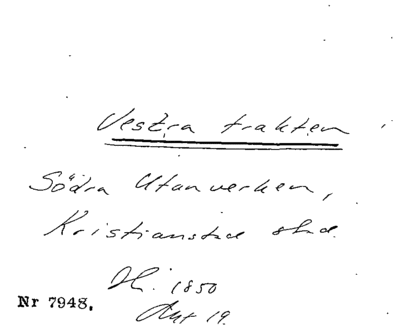 Vestra trakten
Södra Utanverken,
Kristianstad stad.
1850
Nr 7948. Akt 19.